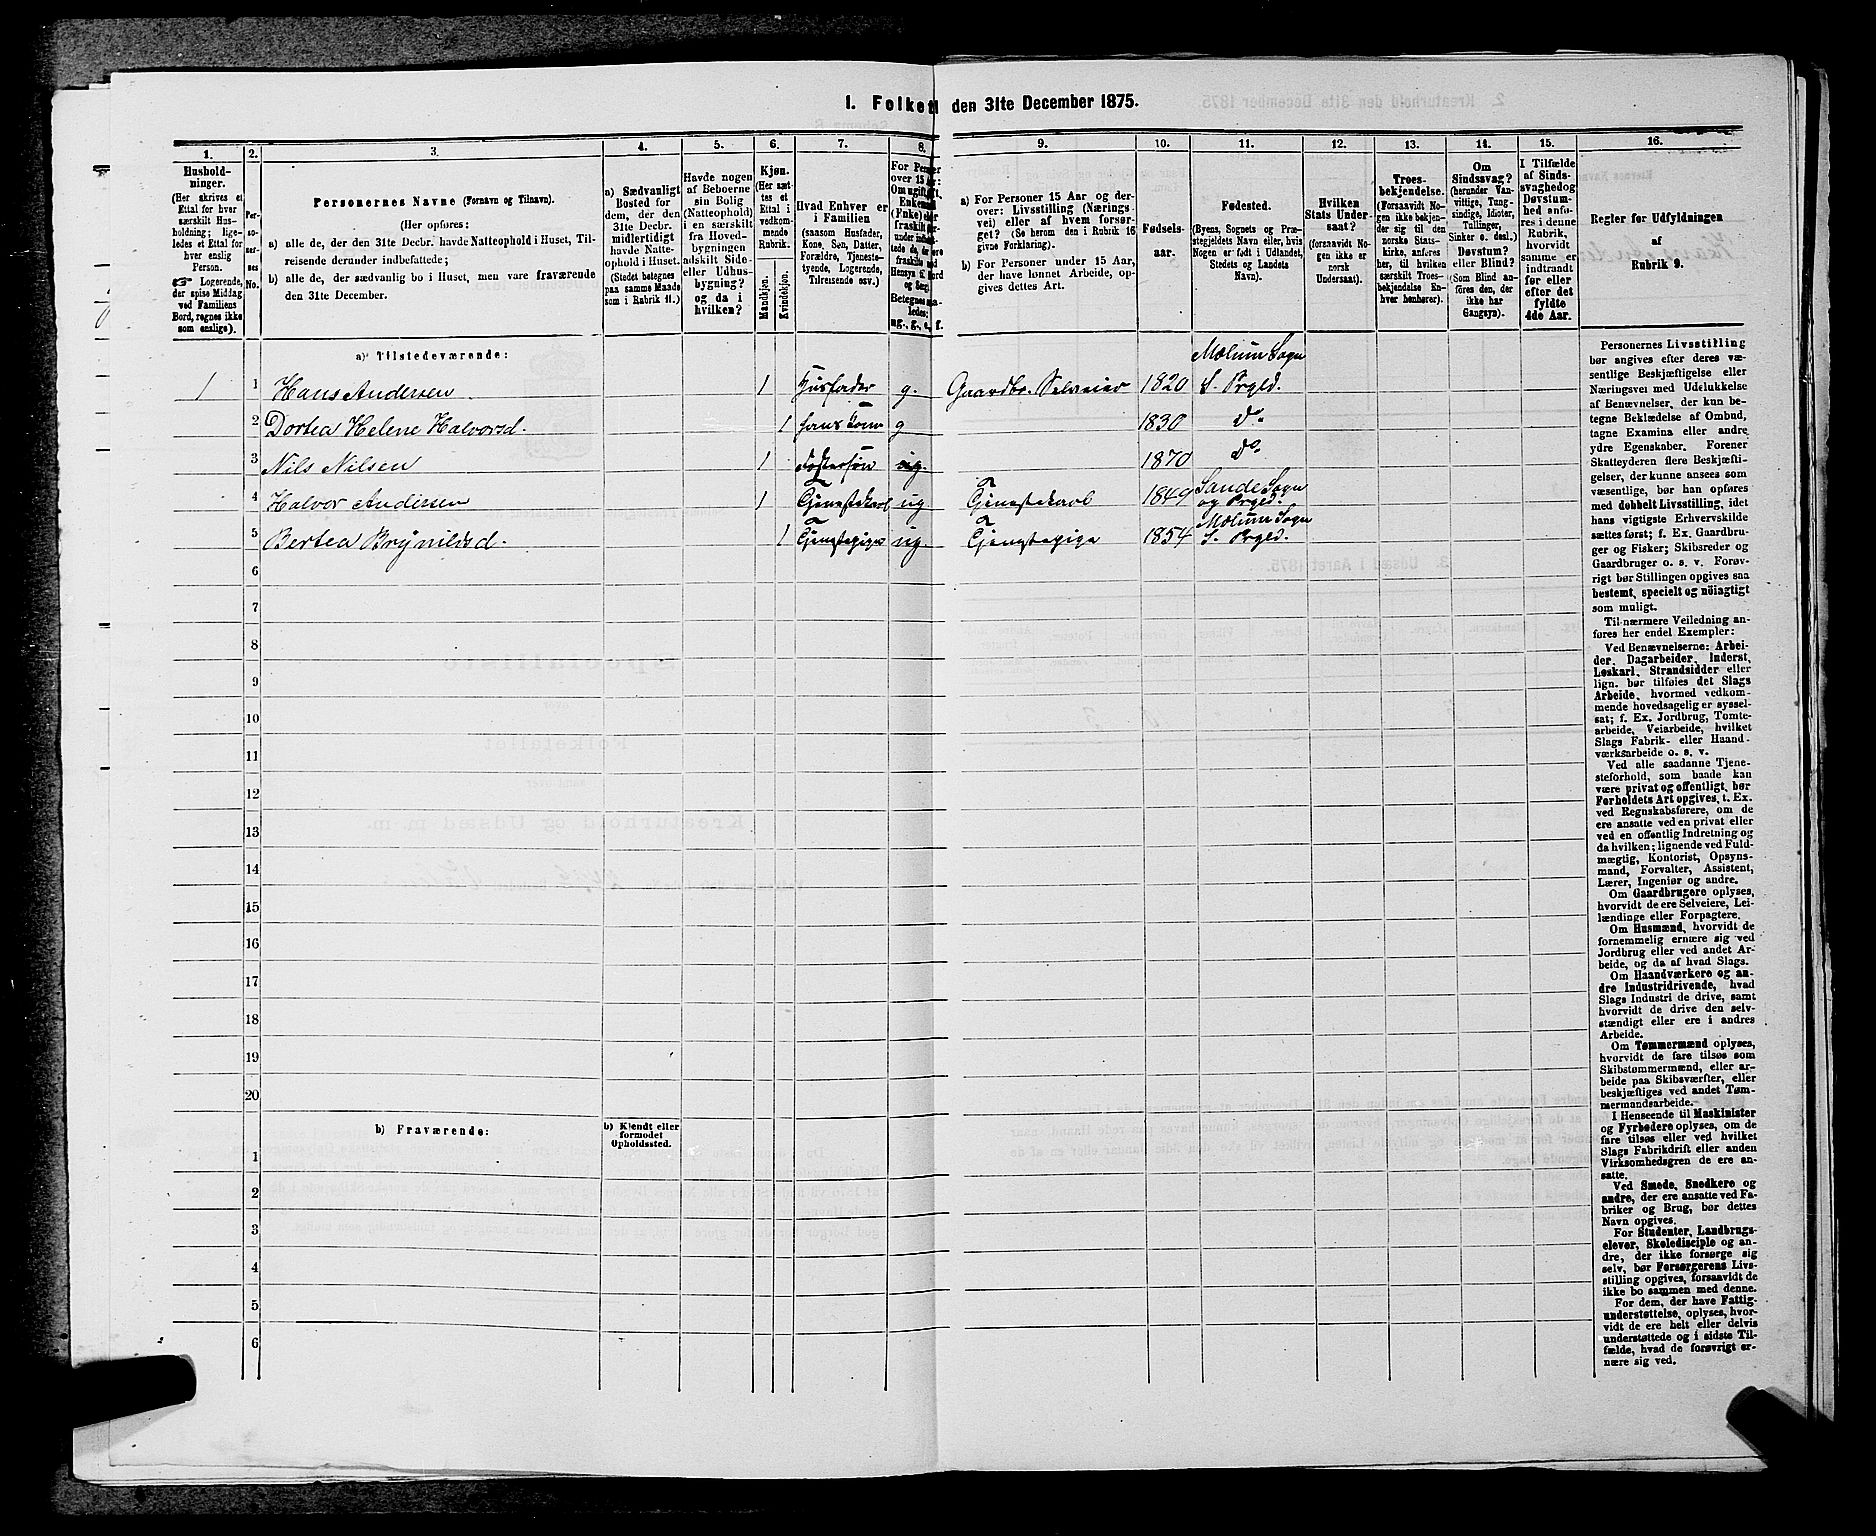 1. Folket den 31te December 1875.
1. 2. 3. 4. 5. 6. 7. 8. 9. 10. 11. 12. 13. 14. 15. 16.
Hushold-
ninger.
(Her skrives et
Ettal for hver
særskilt Hus-
holdning; lige-
ledes et Ettal for
hver enslig
Person.
☞ Logerende,
der spise Middag
ved Familiens
Bord, regnes ikke
som enslige).
Per-
so-
ner-
nes
No.
Personernes Navne (Fornavn og Tilnavn).
(Her opføres:
a) alle de, der den 31te Decbr. havde Natteophold i Huset, Til-
reisende derunder indbefattede;
b) alle de, der sædvanlig bo i Huset, men vare fraværende
den 31te December.
a) Sædvanligt
Bosted for
dem, der den
31te Decbr.
midlertidigt
havde Natte-
ophold i Huset.
(Stedet betegnes
paa samme Maade
som i Rubrik 11.)
Havde nogen
af Beboerne
sin Bolig
(Natteophold)
i en særskilt
fra Hoved-
bygningen
adskilt Side-
eller Udhus-
bygning?
og da i
hvilken?
Kjøn.
(Her sæt-
tes et
Ettal i
vedkom-
mende
Rubrik.
Mandkjøn.
Kvindekjøn.
Hvad Enhver er
i Familien
(saasom Husfader,
Kone, Søn, Datter,
Forældre, Tjeneste-
tyende, Logerende,
Tilreisende osv.)
For Per
over 15
Om ugift
Enke
(Fnke)
fraskilt
Betegnes
ledes:
ug., g., e., f.
a) For Personer 15 Aar og der-
over: Livsstilling (Nærings-
vei) eller af hvem forsør-
get? (Se herom den i Rubrik 16
givne Forklaring).
b) For Personer under 15 Aar,
der have lønnet Arbeide, op-
gives dettes Art.
Fødsels-
aar.
Fødested.
(Byens, Sognets og Præ-
stegjeldets Navn eller, hvis
Nogen er født i Udlandet,
Stedets og Landets
Navn).
Hvilken
Stats Under-
saat?
(forsaavidt No-
gen ikke er
norsk
Undersaat).
Troes-
bekjendelse.
(Forsaavidt No-
gen ikke bekjen-
der sig til den
norske Stats-
kirke, anføres
her, til hvilken
særskilt Troes-
bekjendelse En-
hver henhører).
Om
Sindssvag?
(herunder Van-
vittige, Tung-
sindige, Idioter,
Tullinger,
Sinker o. desl.)
Døvstum?
eller Blind?
(Som Blind an-
føres den, der
ikke har
Gangsyn).
I Tilfælde
af Sinds-
svaghed og
Døvstum-
hed anfø-
res i denne
Rubrik,
hvorvidt
samme er
indtraadt
før eller
efter det
fyldte
4de Aar.
Regler for Udfyldningen
af
Rubrik 9.
a) Tilstedeværende:
1 1 Hans Andersen 1 Husfader g. Gaardbr. Selveier 1820 Mælum Sogn S. Prgld.
2 Dortea Helene Halvorsd. 1 hans Kone g 1830 do
3 Nils Nilsen 1 Fostersøn ug. 1870 do
4 Halvor Andersen 1 Tjenestekarl ug Tjenestekarl 1849 Sande Sogn og Prgld.
5 Bertea Brynildsd. 1 Tjenestepige ug. Tjenestepige 1854 Mælum Sogn S. Prgld.
6
7
8
9
10
11
12
13
14
15
16
17
18
19
20
b) Fraværende:
b) Kjendt eller
formodet
Opholdssted.
1
2
3
4
5
6
Personernes Livsstilling
bør angives efter deres væ-
sentlige Beskjæftigelse eller
Næringsvei med Udelukkelse
af Benævnelser, der kun be-
tegne Beklædelse af Ombud,
tagne Examina eller andre
ydre Egenskaber. Forener
Skatteyderen flere Beskjæfti-
gelser, der kunne ansees som
væsentlige, bør han opføres
med dobbelt Livsstilling, idet
hans vigtigste Erhvervskilde
sættes først; f. Ex. Gaardbru-
ger og Fisker; Skibsreder og
Gaardbruger o. s. v. Forøv-
rigt bør Stillingen opgives saa
bestemt, specielt og nöiagtigt
som muligt.
Til nærmere Veiledning an-
føres her endel Exempler:
Ved Benævnelserne: Arbei-
der, Dagarbeider, Inderst,
Løskarl, Strandsidder eller
lign. bør tilføies det Slags
Arbeide, hvormed vedkom-
mende hovedsagelig er syssel-
sat; f. Ex. Jordbrug, Tømte-
arbeide, Veiarbeide, hvilket
Slags Fabrik- eller Haand-
værksarbeide o. s. v.
Ved alle saadanne Tjene-
steforhold, som baade kan
være privat og offentligt, bør
Forholdets Art opgives, t. Ex.
ved Regnskabsførere, om de
ere ansatte ved en privat eller
ved en offentlig Indretning og
da hvilken; lignende ved Fuld-
mægtig, Kontorist, Opsyns-
mand, Forvalter, Assistent,
Lærer, Ingeniør og andre.
Om Gaardbrugere oplyses,
hvorvidt de ere Selveiere, Lei-
lændinge eller Forpagtere.
Om Husmænd, hvorvidt de
fornemmelig ernære sig ved
Jordbrug eller ved andet Ar-
beide, og da af hvad Slags.
Om Haandværkere og an-
dre Industridrivende, hvad
Slags Industri de drive, samt
hvorvidt de drive den selv-
stændigt eller ere i andres
Arbeide.
Om Tømmermænd oplyses,
hvorvidt de fare tilsøs som
Skibstømmermænd, eller ar-
beide paa Skibsværfter, eller
beskjæftiges ved andet Tøm-
mermandsarbeide.
I Henseende til Maskinister
og Fyrbødere oplyses, om de
fare tilsøs eller ved hvilket
Slags Fabrikdrift eller anden
Virksomhedsgren de ere an-
satte.
Ved Smede, Snedkere og
andre, der ere ansatte ved Fa-
briker og Brug, bør dettes
Navn opgives.
For Studenter, Landbrugs-
elever, Skoledisciple og an-
dre, der ikke forsørge sig
selv, bør Forsørgerens Livs-
stilling opgives, forsaavidt de
ikke bo sammen med denne.
For dem, der have Fattig-
understøttelse, oplyses, hvor-
vidt de ere helt eller delvis
understøttede og i sidste Til-
fælde, hvad de forøvrigt er-
nære sig ved.